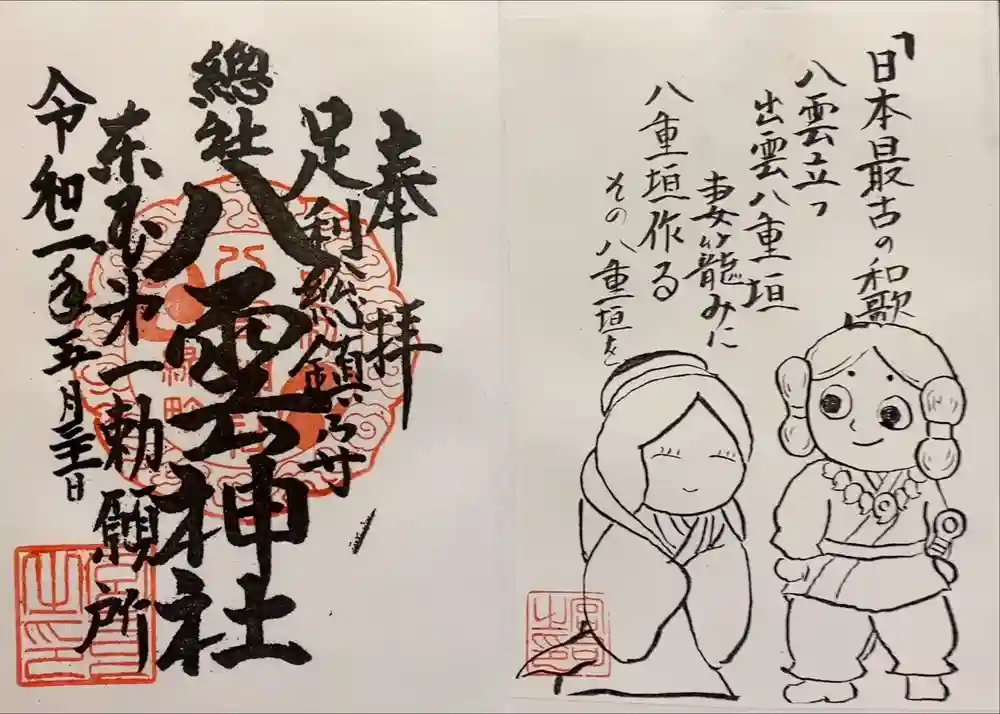 奉拝
足利総鎮守
總社
八雲神社
東国第一勅願所
令和二年五月三十一日
「日本最古の和歌」
八雲立つ
出雲八重垣
妻籠みに
八重垣作る
その八重垣を